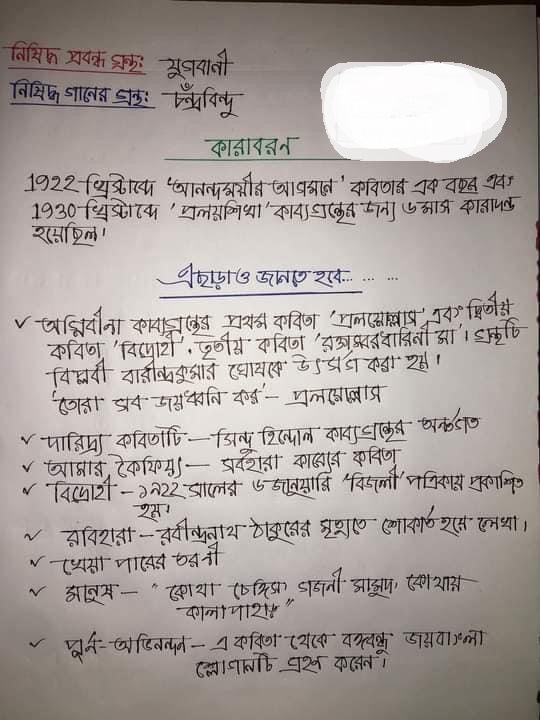 নিষিদ্ধ প্রবন্ধ গ্রন্থ: যুগবানী
নিষিদ্ধ গানের গ্রন্থ: চন্দ্রবিন্দু
কারাবরন
1922-খ্রিস্টাব্দে 'আনন্দময়ীর আগমনে' কবিতার এক বছর এবং
1930-খ্রিস্টাব্দে 'প্রলয়শিখা' কাব্যগ্রন্থের জন্য ৬ মাস কারাদন্ড
হয়েছিল।
এছাড়াও জানতে হবে... ... ...
✓ অগ্নিবীনা কাব্যগ্রন্থের প্রথম কবিতা 'প্রলয়োল্লাস' এবং দ্বিতীয়
কবিতা 'বিদ্রোহী'. তৃতীয় কবিতা 'রক্তাম্বরধারিনী মা'। গ্রন্থটি
বিপ্লবী বারীন্দ্রকুমার ঘোষকে উৎসর্গ করা হয়।
'তোরা সব জয়ধ্বনি কর' – প্রলয়োল্লাস
✓ দারিদ্র্য কবিতাটি – সিন্ধু হিন্দোল কাব্যগ্রন্থের অন্তর্গত
✓ আমার কৈফিয়ৎ – সর্বহারা কাব্যের কবিতা
✓ বিদ্রোহী – ১৯২২ সালের ৬ জানুয়ারি 'বিজলী' পত্রিকায় প্রকাশিত
হয়।
✓ রবিহারা – রবীন্দ্রনাথ ঠাকুরের মৃত্যুতে শোকার্ত হয়ে লেখা।
✓ খেয়া পারের তরনী
✓ মানুষ – "কোথা চেঙ্গিস, গজনী মামুদ, কোথায়
কালাপাহাড়"
✓ পূর্ন-অভিনন্দন – এ কবিতা থেকে বঙ্গবন্ধু জয়বাংলা
স্লোগানটি গ্রহন করেন।